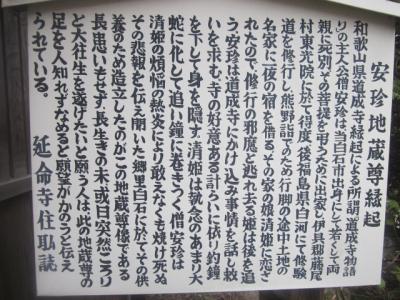 安珍地蔵尊縁起
和歌山県道成寺縁起による所謂「道成寺物語
りの主人公僧安珍は当白石市出身にして若くして両
親に死別その菩提を弔うために出家し伊具郡藤尾
村東光院に於て得度、後福島県白河にて修験
道を修行し、熊野詣でのため行脚の途中土地の
名家に一夜の宿を借る。その家の娘清姫に恋さ
れたので修行の邪魔と逃れ去る姫は後を追
う安珍は道成寺にかけ込み事情を話し救
いを求む。寺の好意ある計らいに依り釣鐘
を下して身を隠す。清姫は執念のあまり大
蛇に化して追い鐘に巻きつく僧安珍は
清姫の煩悩の熱炎により敢えなくも焼け死ぬ
その悲報を伝え聞いた郷里白石に於てその供
養のため造立したのがこの地蔵尊像である
長患いもせず、長生きの末、或日突然ころり
と大往生を遂げたいと願う人は、此の地蔵尊の
足を人知れずなめると願望がかのうと伝え
られている。
延命寺住職誌